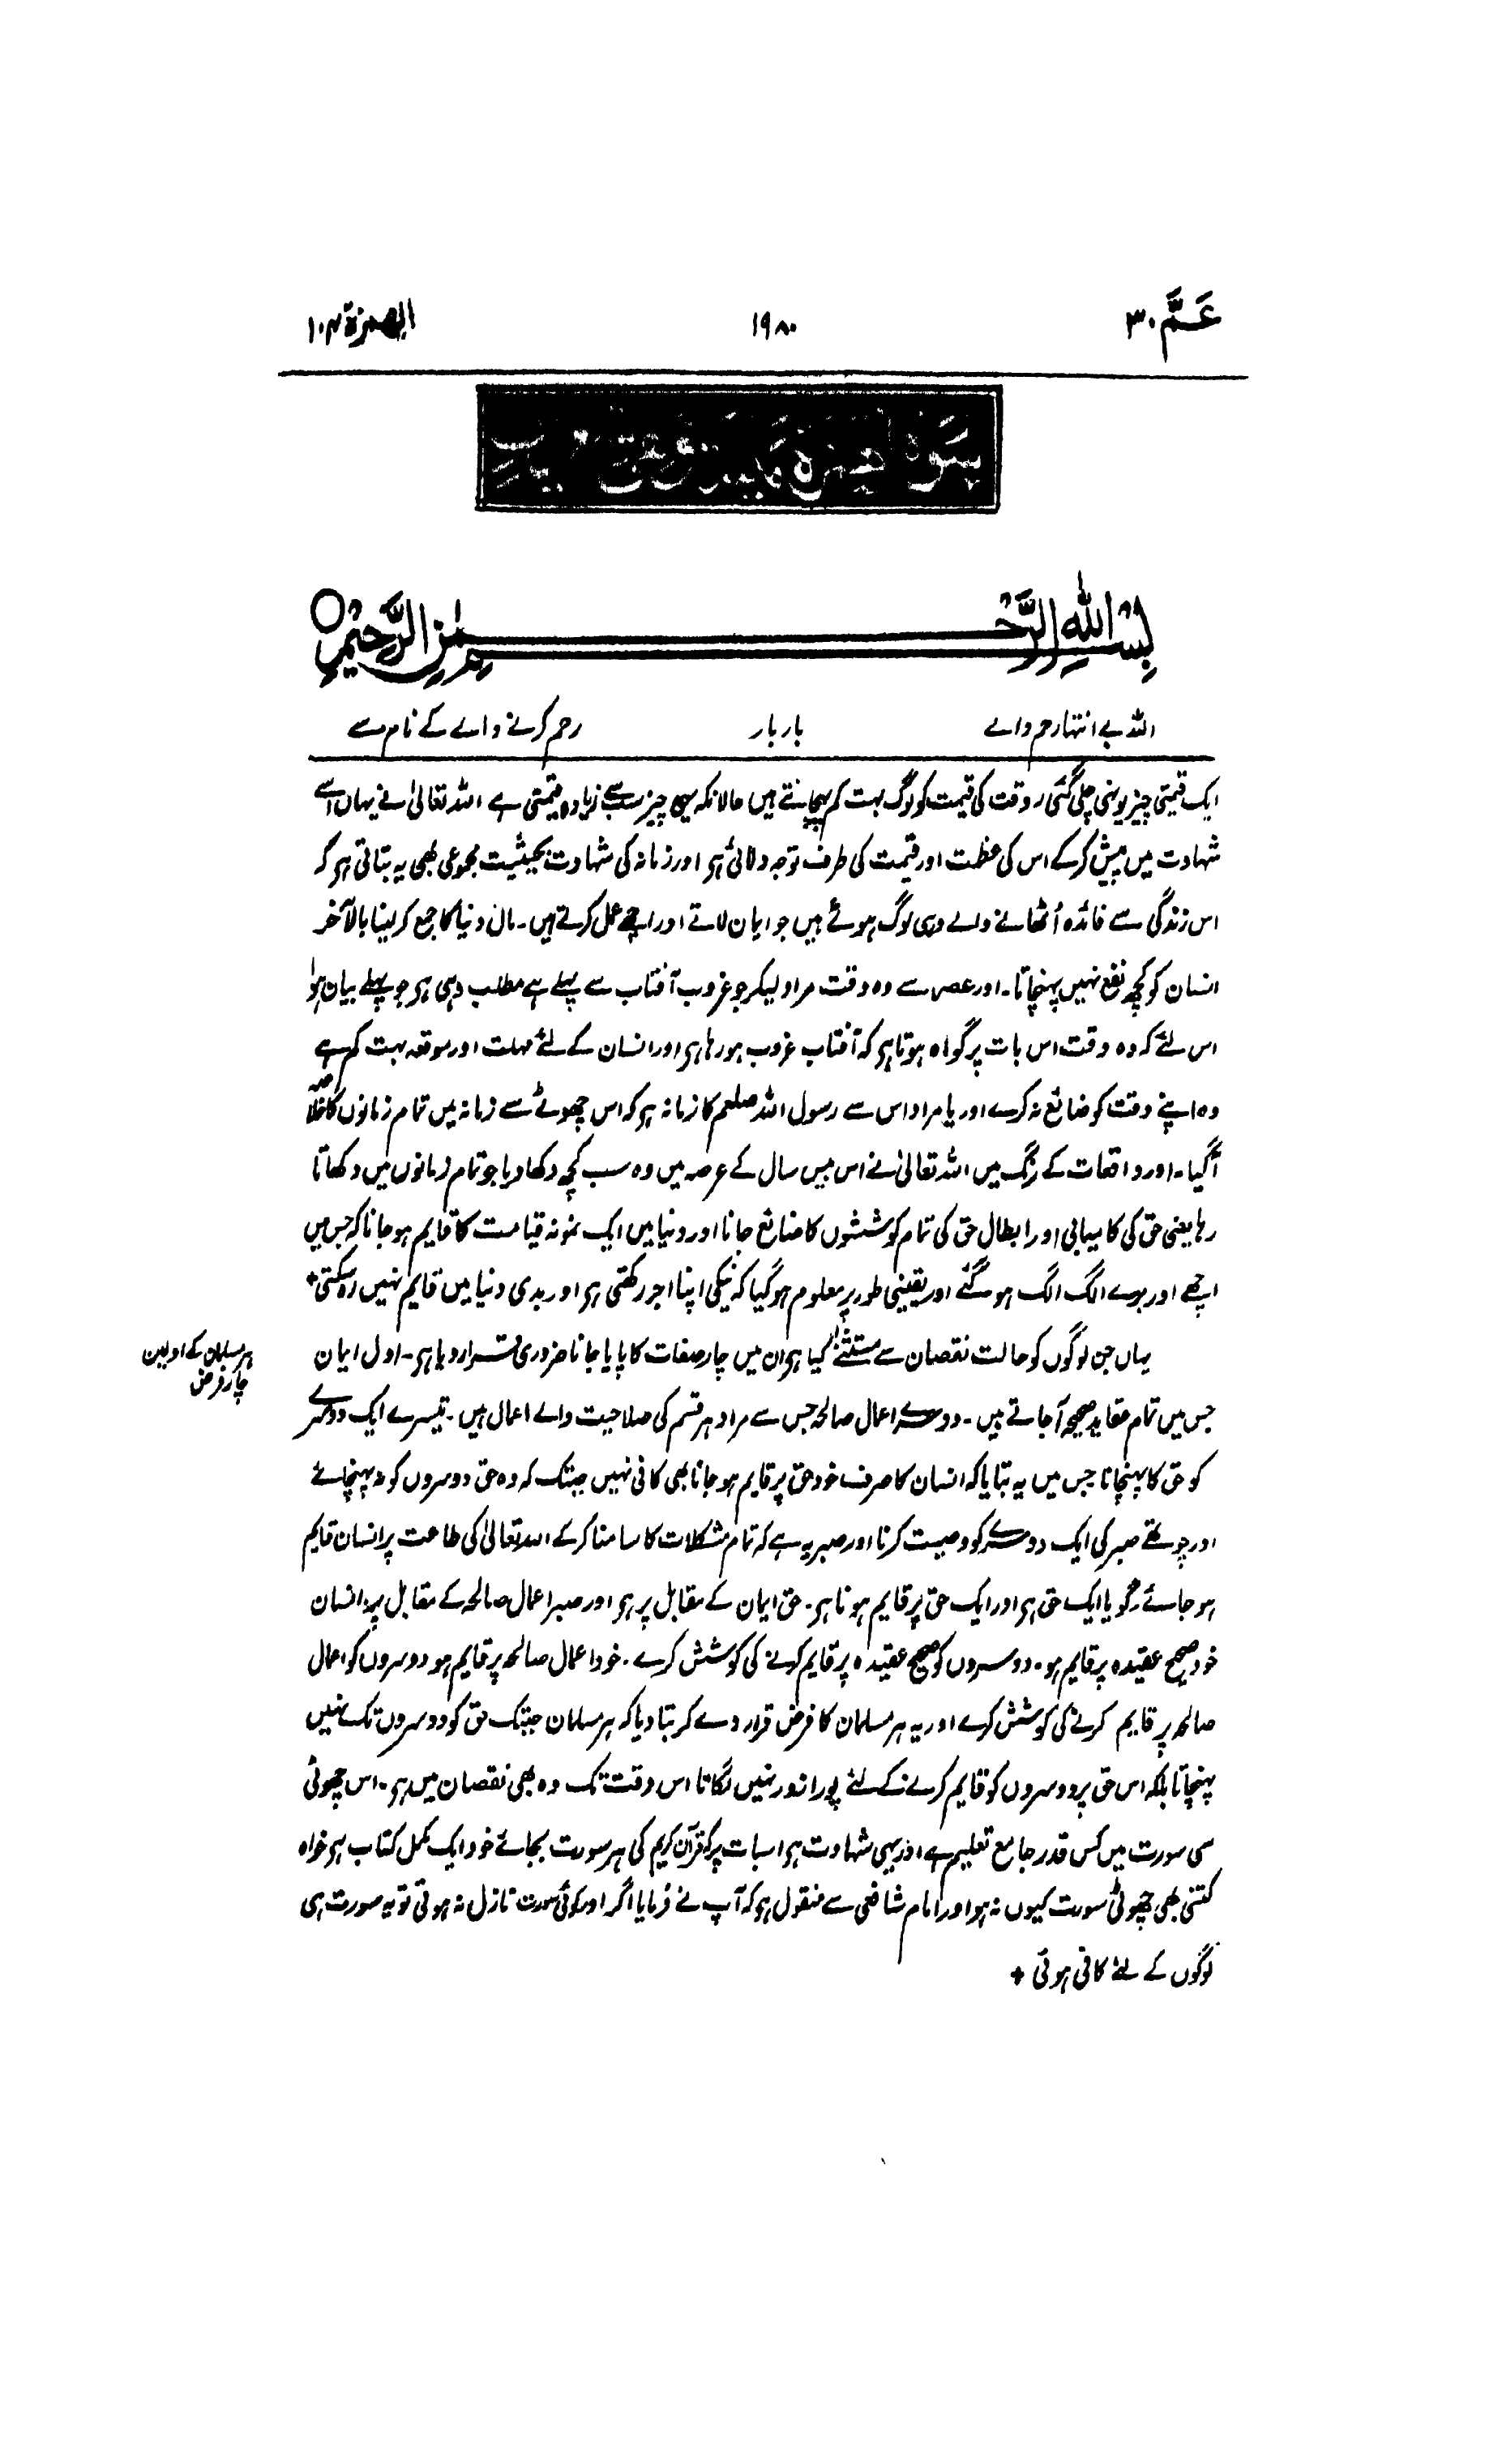 عَمَّ ٣٠
١٩٨٠
الهمزة ١٠٤
بِسْمِ اللهِ الرَّحْمٰنِ الرَّحِيْمِ
اللہ بے انتہا رحم والے بار بار رحم کرنے والے کے نام سے
ایک قیمتی چیز یونہی چلی گئی ، وقت کی قیمت کو لوگ بہت کم پہچانتے ہیں حالانکہ یہی چیز سب سے زیادہ قیمتی ہے اللہ تعالیٰ نے یہاں اسے
شہادت میں پیش کر کے اس کی عظمت اور قیمت کی طرف توجہ دلائی ہو اور زمانہ کی شہادت بحیثیت مجموعی بھی یہ بتاتی ہو کہ
اس زندگی سے فائدہ اُٹھانے والے وہی لوگ ہوئے ہیں جو ایمان لاتے اور اچھے عمل کرتے ہیں ۔ مال دنیا کا جمع کر لینا بالآخر
انسان کو کچھ نفع نہیں پہنچاتا ۔ اور عصر سے وہ وقت مراد لیکر جو غروب آفتاب سے پہلے ہے مطلب وہی ہو جو پہلے بیان ہوا
اس لئے کہ وہ وقت اس بات پر گواہ ہوتا ہو کہ آفتاب غروب ہو رہا ہو اور انسان کے لئے مہلت اور موقعہ بہت کم ہے
وہ اپنے وقت کو ضائع نہ کرے اور یا مراد اس سے رسول اللہ صلعم کا زمانہ ہو کہ اس چھوٹے سے زمانہ میں تمام زمانوں کا خلاصہ
آگیا ۔ اور واقعات کے رنگ میں اللہ تعالیٰ نے اس بیس سال کے عرصہ میں وہ سب کچھ دکھا دیا جو تمام زمانوں میں دکھاتا
رہا یعنی حق کی کامیابی اور ابطال حق کی تمام کوششوں کا ضائع جانا اور دنیا میں ایک نمونہ قیامت کا قایم ہو جانا کہ جس میں
اچھے اور بُرے الگ الگ ہو گئے اور یقینی طور پر معلوم ہو گیا کہ نیکی اپنا اجر رکھتی ہو اور بدی دنیا میں قایم نہیں رہ سکتی +
یہاں جن لوگوں کو حالت نقصان سے مستثنےٰ کیا ہو ان میں چار صفات کا پایا جانا ضروری قرار دیا ہو ۔ اول ایمان
ہر مسلمان کے اولین
چار فرض
جس میں تمام عقاید صحیحہ آ جاتے ہیں ۔ دوسرے اعمال صالحہ جس سے مراد ہر قسم کی صلاحیت والے اعمال ہیں ۔ تیسرے ایک دوسرے
کو حق کا پہنچانا جس میں یہ بتایا کہ انسان کا صرف خود حق پر قایم ہو جانا بھی کافی نہیں جبتک کہ وہ حق دوسروں کو نہ پہنچائے
اور چوتھے صبر کی ایک دوسرے کو وصیت کرنا اور صبر یہ ہے کہ تمام مشکلات کا سامنا کر کے اللہ تعالیٰ کی طاعت پر انسان قایم
ہو جائے ۔ گویا ایک حق ہو اور ایک حق پر قایم ہونا ہو ۔ حق ایمان کے مقابل پر ہو اور صبر اعمال صالحہ کے مقابل پر ۔ انسان
خود صحیح عقیدہ پر قایم ہو ۔ دوسروں کو صحیح عقیدہ پر قایم کرنے کی کوشش کرے ۔ خود اعمال صالحہ پر قایم ہو دوسروں کو اعمال
صالحہ پر قایم کرنے کی کوشش کرے اور یہ ہر مسلمان کا فرض قرار دے کر بتا دیا کہ ہر مسلمان جبتک حق کو دوسروں تک نہیں
پہنچاتا بلکہ اس حق پر دوسروں کو قایم کرنے کے لئے پورا زور نہیں لگاتا اس وقت تک وہ بھی نقصان میں ہو ۔ اس چھوٹی
سی سورت میں کس قدر جامع تعلیم ہے اور یہی شہادت ہو اسبات پر کہ قرآن کریم کی ہر سورت بجائے خود ایک مکمل کتاب ہو خواہ
کتنی بھی چھوٹی سورت کیوں نہ ہو اور امام شافعی سے منقول ہو کہ آپ نے فرمایا اگر اور کوئی سورت نازل نہ ہوتی تو یہ سورت ہی
لوگوں کے لئے کافی ہوتی +